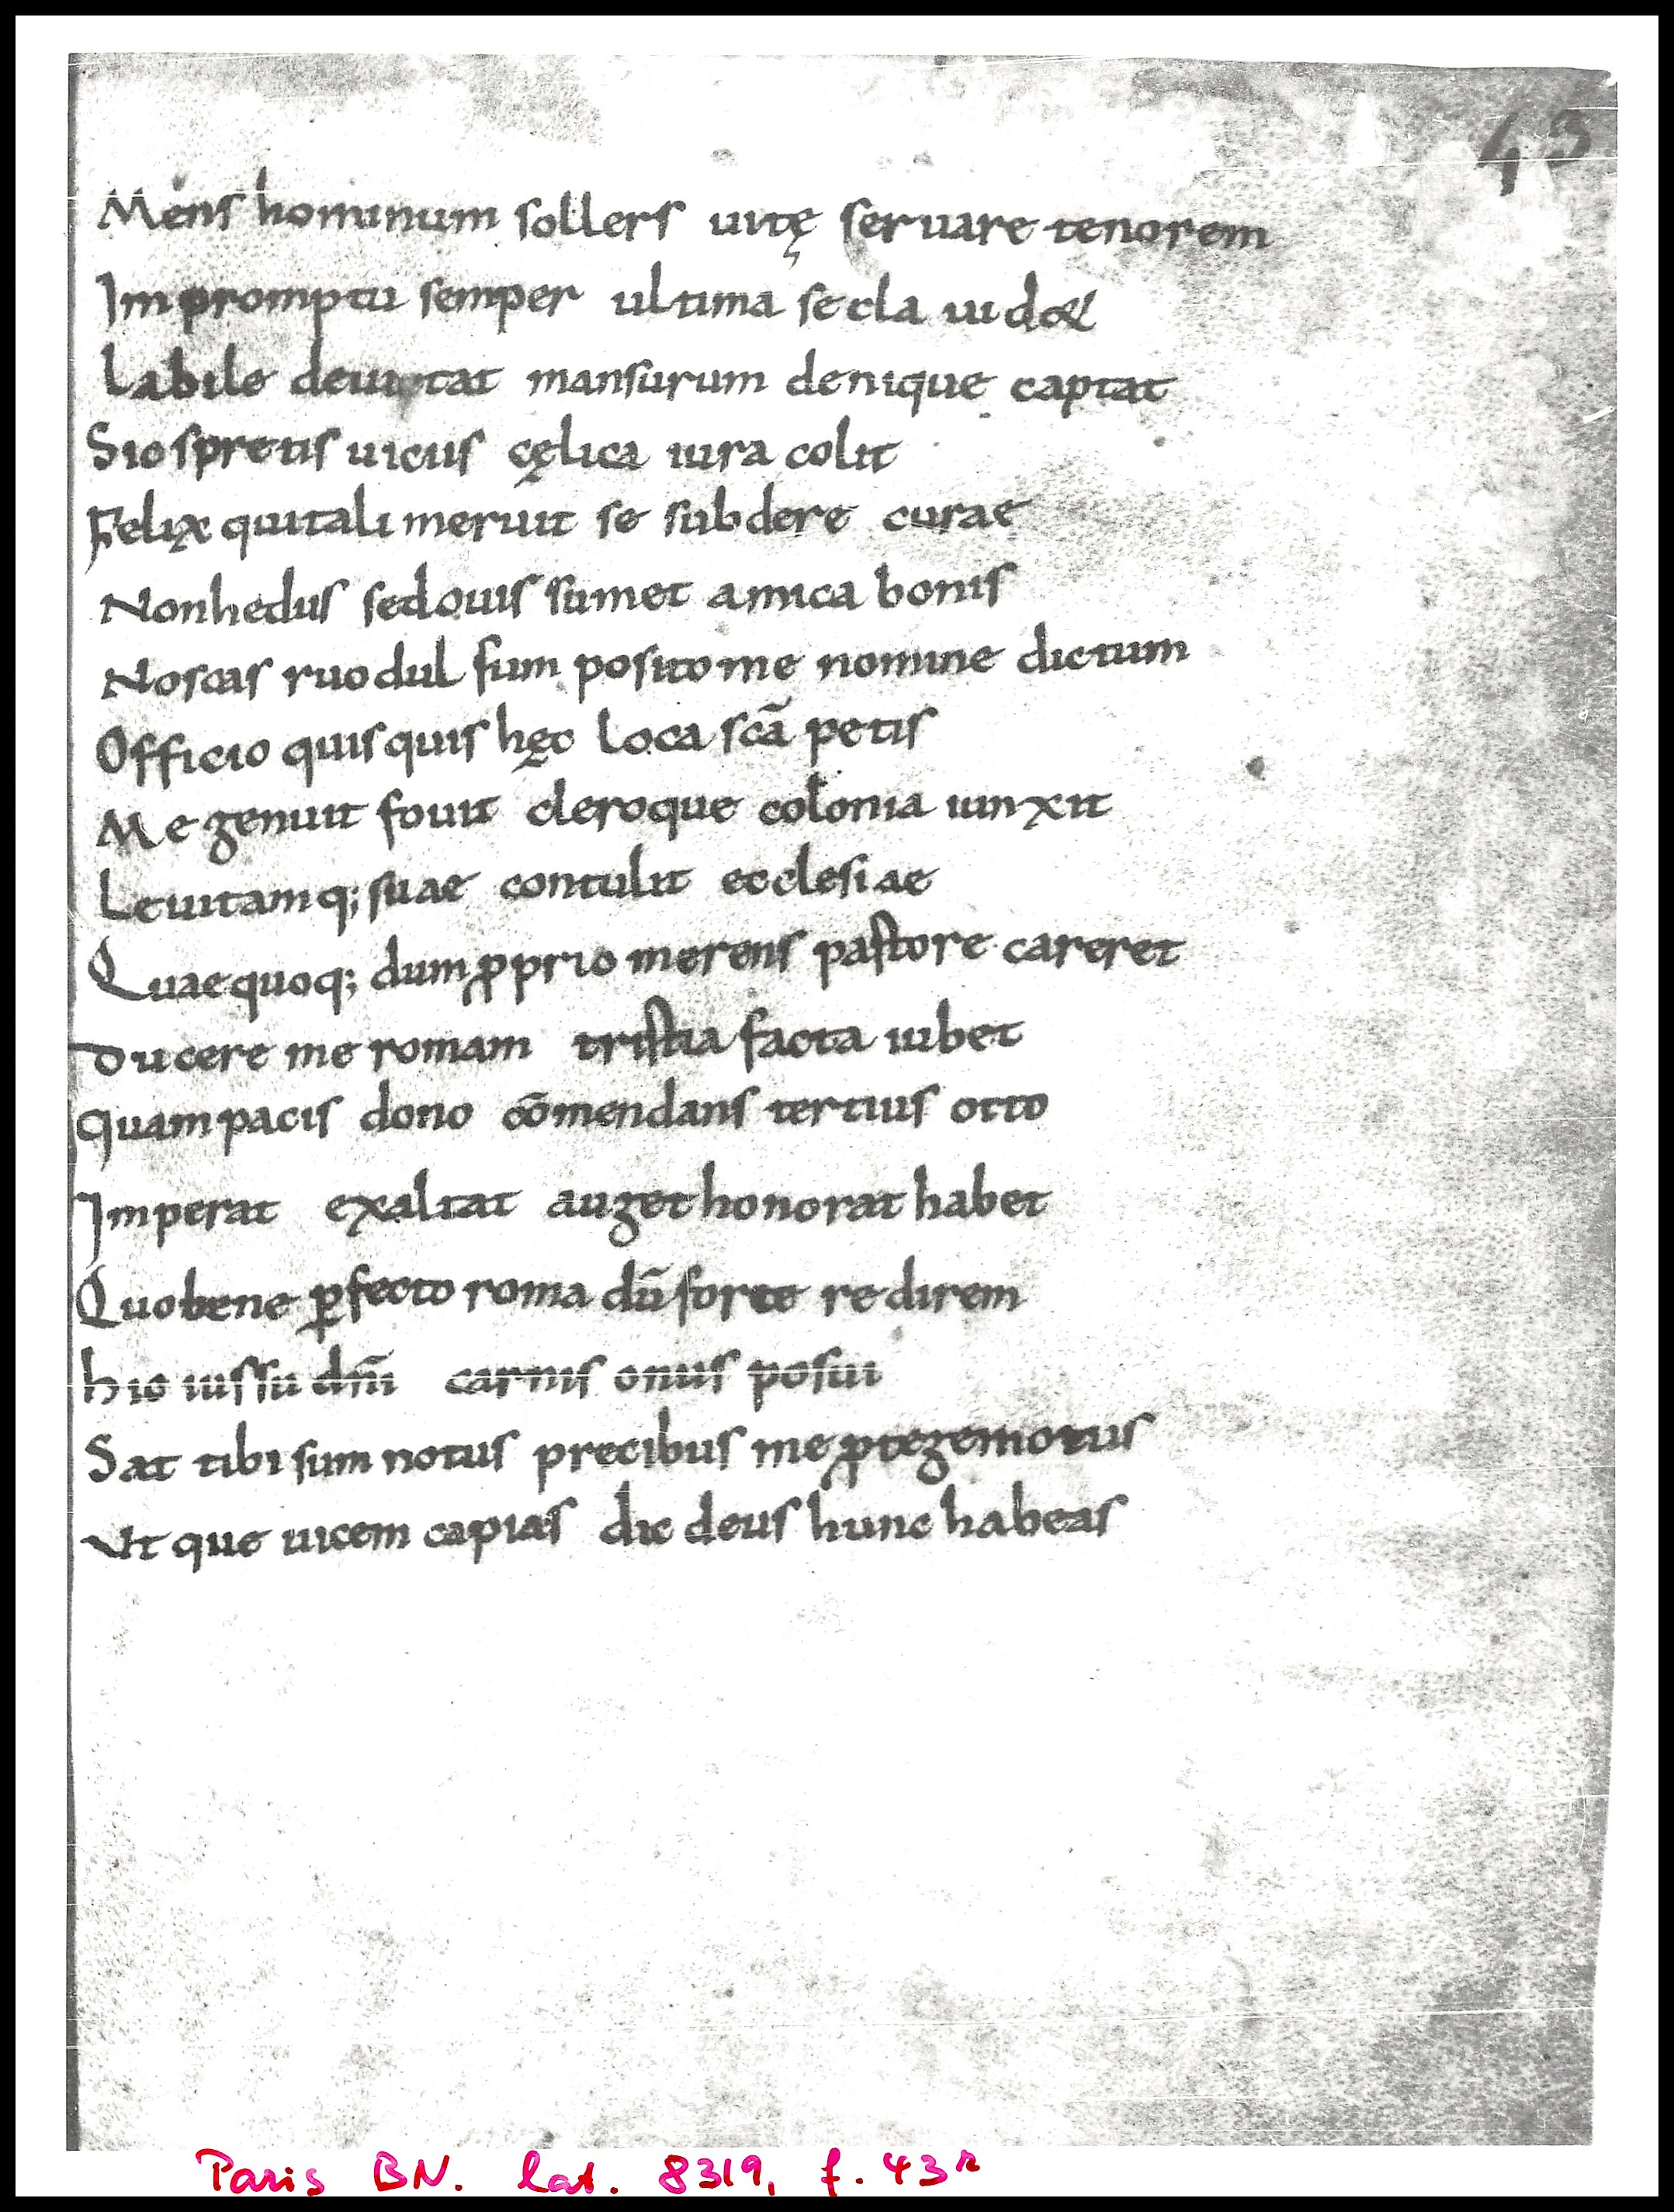 43
Mens hominum sollers uitę seruare tenorem
Impromptu semper ultima secla uidet
Labile deuitat mansurum denique captat
Sic spretis uiciis cęlica iura colit
Felix qui tali meruit se subdere curae
Non hedus sed ouis sumet amica bonis
Noscas ruodulfum posito me nomine dictum
Officio quisquis hęc loca scā petis
Me genuit fouit cleroque colonia iunxit
Leuitamq; suae contulit ecclesiae
Quae quoq; dum ꝓprio merens pastore careret
Ducere me romam tristia facta iubet
Quam pacis dono cōmendans tertius otto
Imperat exaltat auget honorat habet
Quo bene ꝑfecto roma dū forte redirem
hic iussu dn̄i carnis onus posui
Sat tibi sum notus precibus me ꝓtege motus
Ut que uicem capias dic deus hunc habeas
Paris BN. lat. 8319, f. 43r